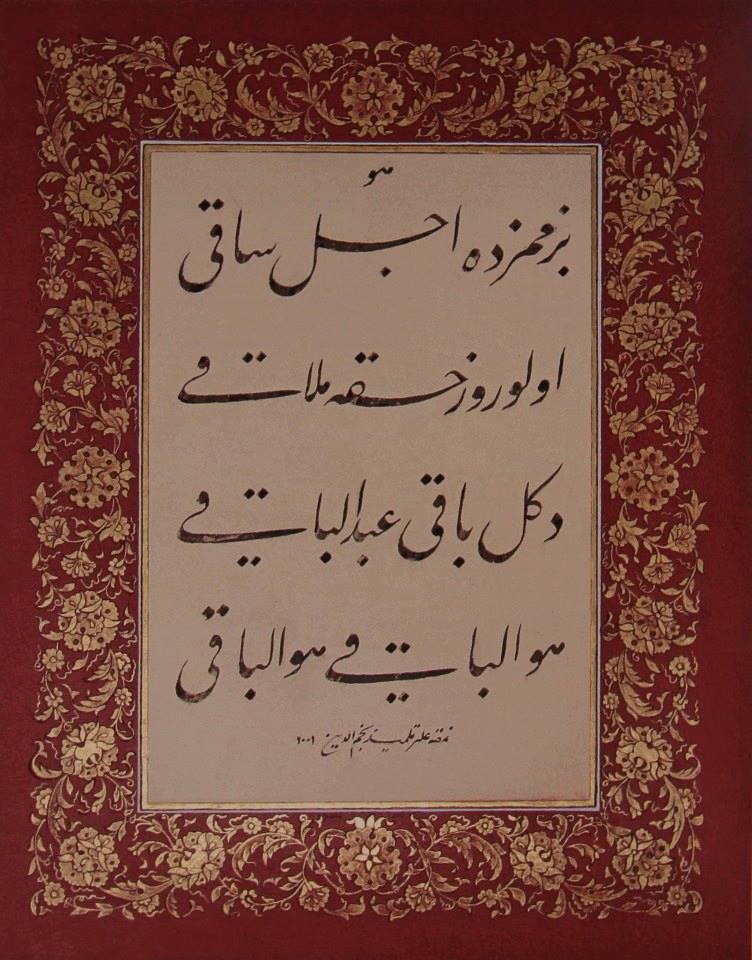 هو
بزممزده اجل ساقی
اولوروز حقه ملاقی
دكل باقی عبدالباقی
هو الباقی هو الباقی
نمقه علی تلمیذ نجم الدین ٢٠٠١